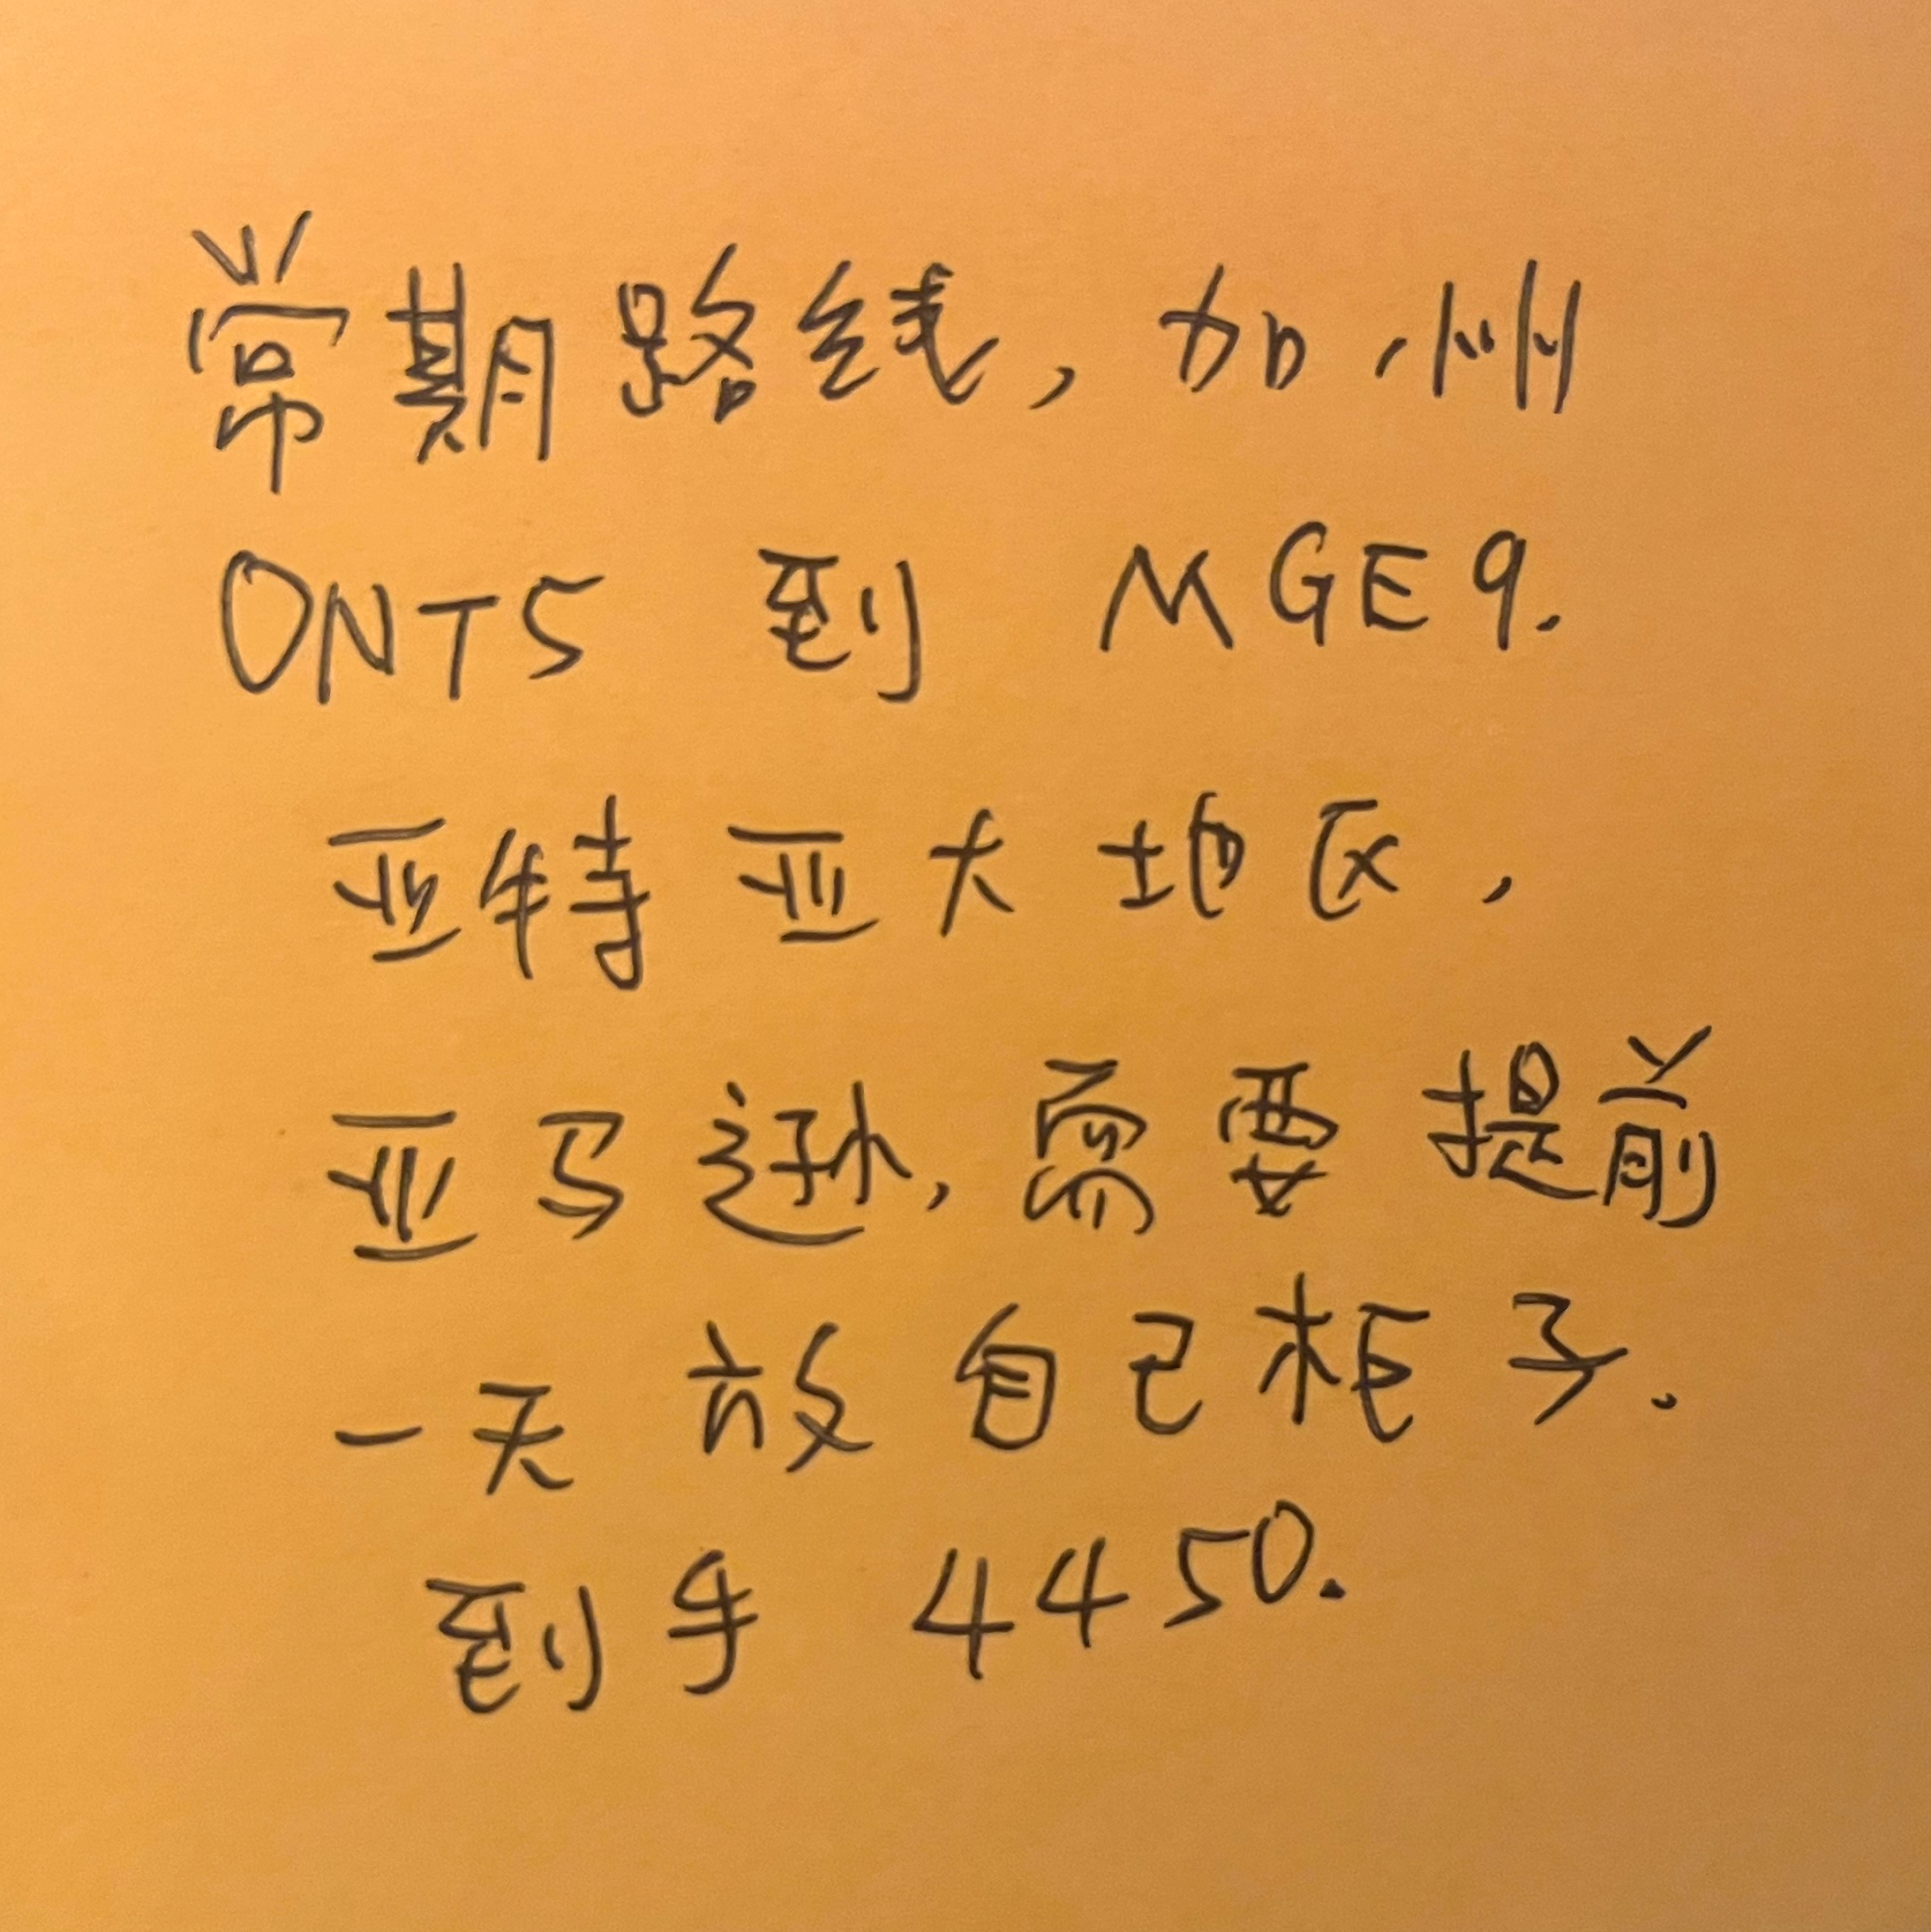 常期路线，加州
ONT5 到 MGE9.
亚特亚大地区，
亚马逊，需要提前
一天 放自己柜子.
到手 4450.